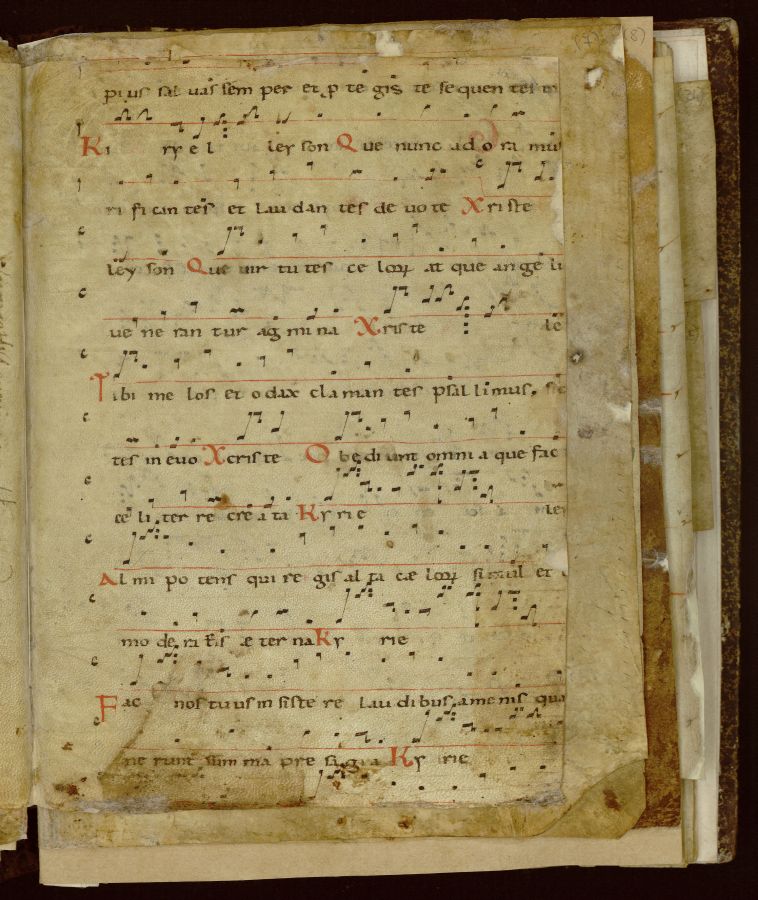 pius sal uas sem per et p te gis te se quen tes
Ki ry e l ley son Que nunc ad o ra mus
ri fi can tes et lau dan tes de uo te Xriste
ley son Que uir tu tes ce loꝝ at que an ge li
ue ne ran tur ag mi na Xriste le
Tibi me los et o dax cla man tes psal limus.
tes in euo Xcriste Obediunt omni a que fac
li ter re cre a ta Kyrie ley
Al mi po tens qui re gis al ta cæ loꝝ simul et
mo de ra ris æ ter na Ky rie
Fac nos tuus in siste re lau dibus amenis qua
ne runt summa pre si gia Ky rie